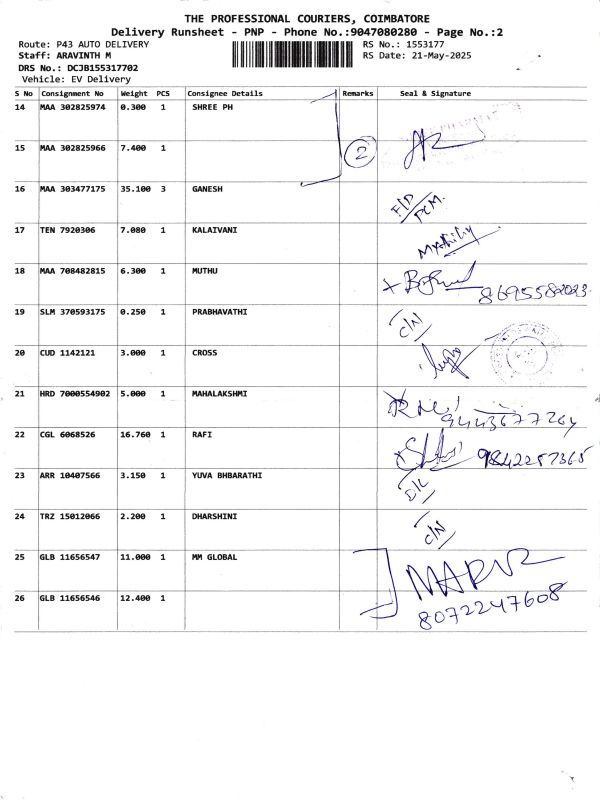 THE PROFESSIONAL COURIERS, COIMBATORE
Delivery Runsheet - PNP - Phone No.:9047080280 - Page No.:2
Route: P43 AUTO DELIVERY
RS No.: 1553177
Staff: ARAVINTH M
RS Date: 21-May-2025
DRS No.: DCJB155317702
Vehicle: EV Delivery
S No Consignment No Weight PCS Consignee Details Remarks Seal & Signature
14 MAA 302825974 0.300 1 SHREE PH
15 MAA 302825966 7.400 1 2
16 MAA 303477175 35.100 3 GANESH F/D PCM.
17 TEN 7920306 7.080 1 KALAIVANI
18 MAA 708482815 6.300 1 MUTHU
19 SLM 370593175 0.250 1 PRABHAVATHI C/N
20 CUD 1142121 3.000 1 CROSS
21 HRD 7000554902 5.000 1 MAHALAKSHMI 9443677264
22 CGL 6068526 16.760 1 RAFI 9842257365
23 ARR 10407566 3.150 1 YUVA BHBARATHI D/L
24 TRZ 15012066 2.200 1 DHARSHINI C/N
25 GLB 11656547 11.000 1 MM GLOBAL
26 GLB 11656546 12.400 1 8072247608